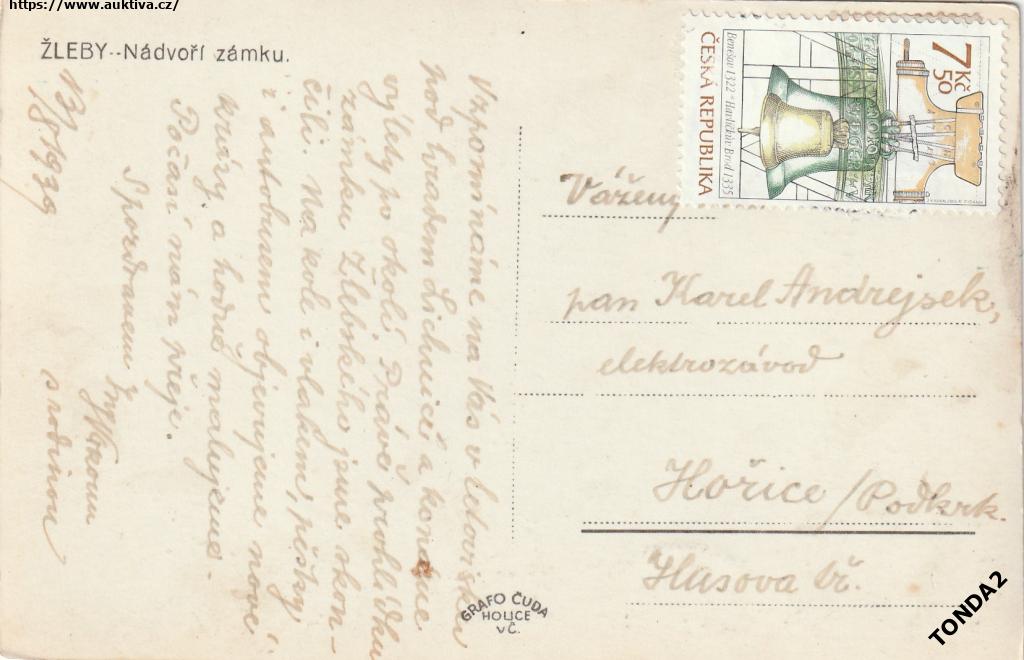 https://www.auktiva.cz/
ŽLEBY--Nádvoří zámku.
13/8 1939
Vzpomínáme na Vás v letovisku
pod hradem Lichnicí a konáme
výlety po okolí. Právě prohlídku
zámku Žlebského jsme skon-
čili. Na kole i vlakem, pěšky
i autobusem objevujeme nové
krásy a hodně malujeme.
Počasí nám přeje.
S pozdravem Ing
s rodinou
GRAFO ČUDA
HOLICE
VČ.
7 50 Kč
ČESKÁ REPUBLIKA
Benešov 1322 - Havlíčkův Brod 1335
Vážený
pan Karel Andrejsek,
elektrozávod
Hořice/Podkrk.
Husova tř.
TONDA2